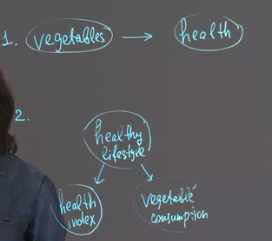 1. vegetables → health
2.
healthy
lifestyle
health
index
vegetable
consumption